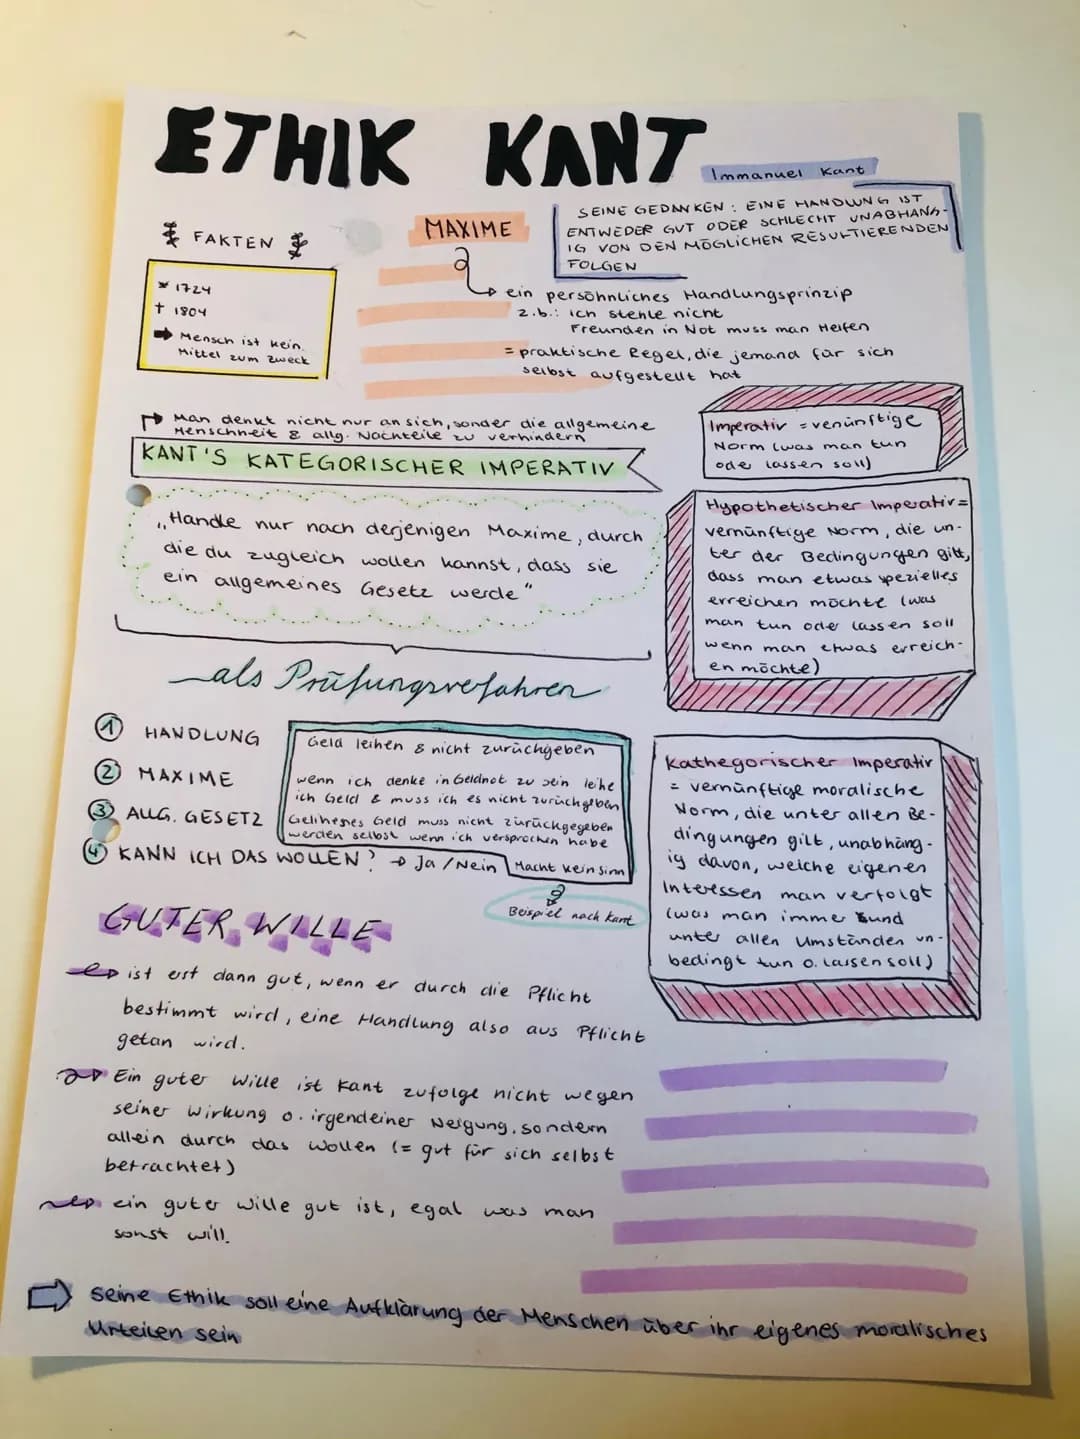 ETHIK KANT
Immanuel Kant
SEINE GEDANKEN: EINE HANDLUNG IST
ENTWEDER GUT ODER SCHLECHT UNABHÄNG-
IG VON DEN MÖGLICHEN RESULTIERENDEN
FOLGEN
FAKTEN
* 1724
† 1804
➡ Mensch ist kein
Mittel zum Zweck
MAXIME
ein persöhnliches Handlungsprinzip
z.b.: ich stehle nicht
Freunden in Not muss man Helfen
= praktische Regel, die jemand für sich
selbst aufgestellt hat
Man denkt nicht nur an sich, sonder die allgemeine
Menschheit & allg. Nachteile zu verhindern
KANT'S KATEGORISCHER IMPERATIV
„Handle nur nach derjenigen Maxime, durch
die du zugleich wollen kannst, dass sie
ein allgemeines Gesetz werde"
Imperativ = venünftige
Norm (was man tun
ode lassen soll)
Hypothetischer Imperativ =
vernünftige Norm, die un-
ter der Bedingungen gilt,
dass man etwas spezielles
erreichen möchte (was
man tun oder lassen soll
wenn man etwas erreich-
en möchte)
als Prüfungsverfahren
1 HANDLUNG
2 MAXIME
3 ALLG. GESETZ
4 KANN ICH DAS WOLLEN? → Ja / Nein
Geld leihen & nicht zurückgeben
wenn ich denke in Geldnot zu sein leihe
ich Geld & muss ich es nicht zurückgeben
Gelihenes Geld muss nicht zurückgegeben
werden selbst wenn ich versprochen habe
Macht kein sinn
Beispiel nach Kant
Kathegorischer Imperativ
= vernünftige moralische
Norm, die unter allen Be-
dingungen gilt, unabhäng-
ig davon, welche eigenen
Interessen man verfolgt
(was man immer und
unter allen Umständen un-
bedingt tun o. lassen soll)
GUTER WILLE
ist erst dann gut, wenn er durch die Pflicht
bestimmt wird, eine Handlung also aus Pflicht
getan wird.
Ein guter Wille ist Kant zufolge nicht wegen
seiner Wirkung o. irgendeiner Neigung, sondern
allein durch das Wollen (= gut für sich selbst
betrachtet)
ein guter Wille gut ist, egal was man
sonst will.
Seine Ethik soll eine Aufklärung der Menschen über ihr eigenes moralisches
Urteilen sein